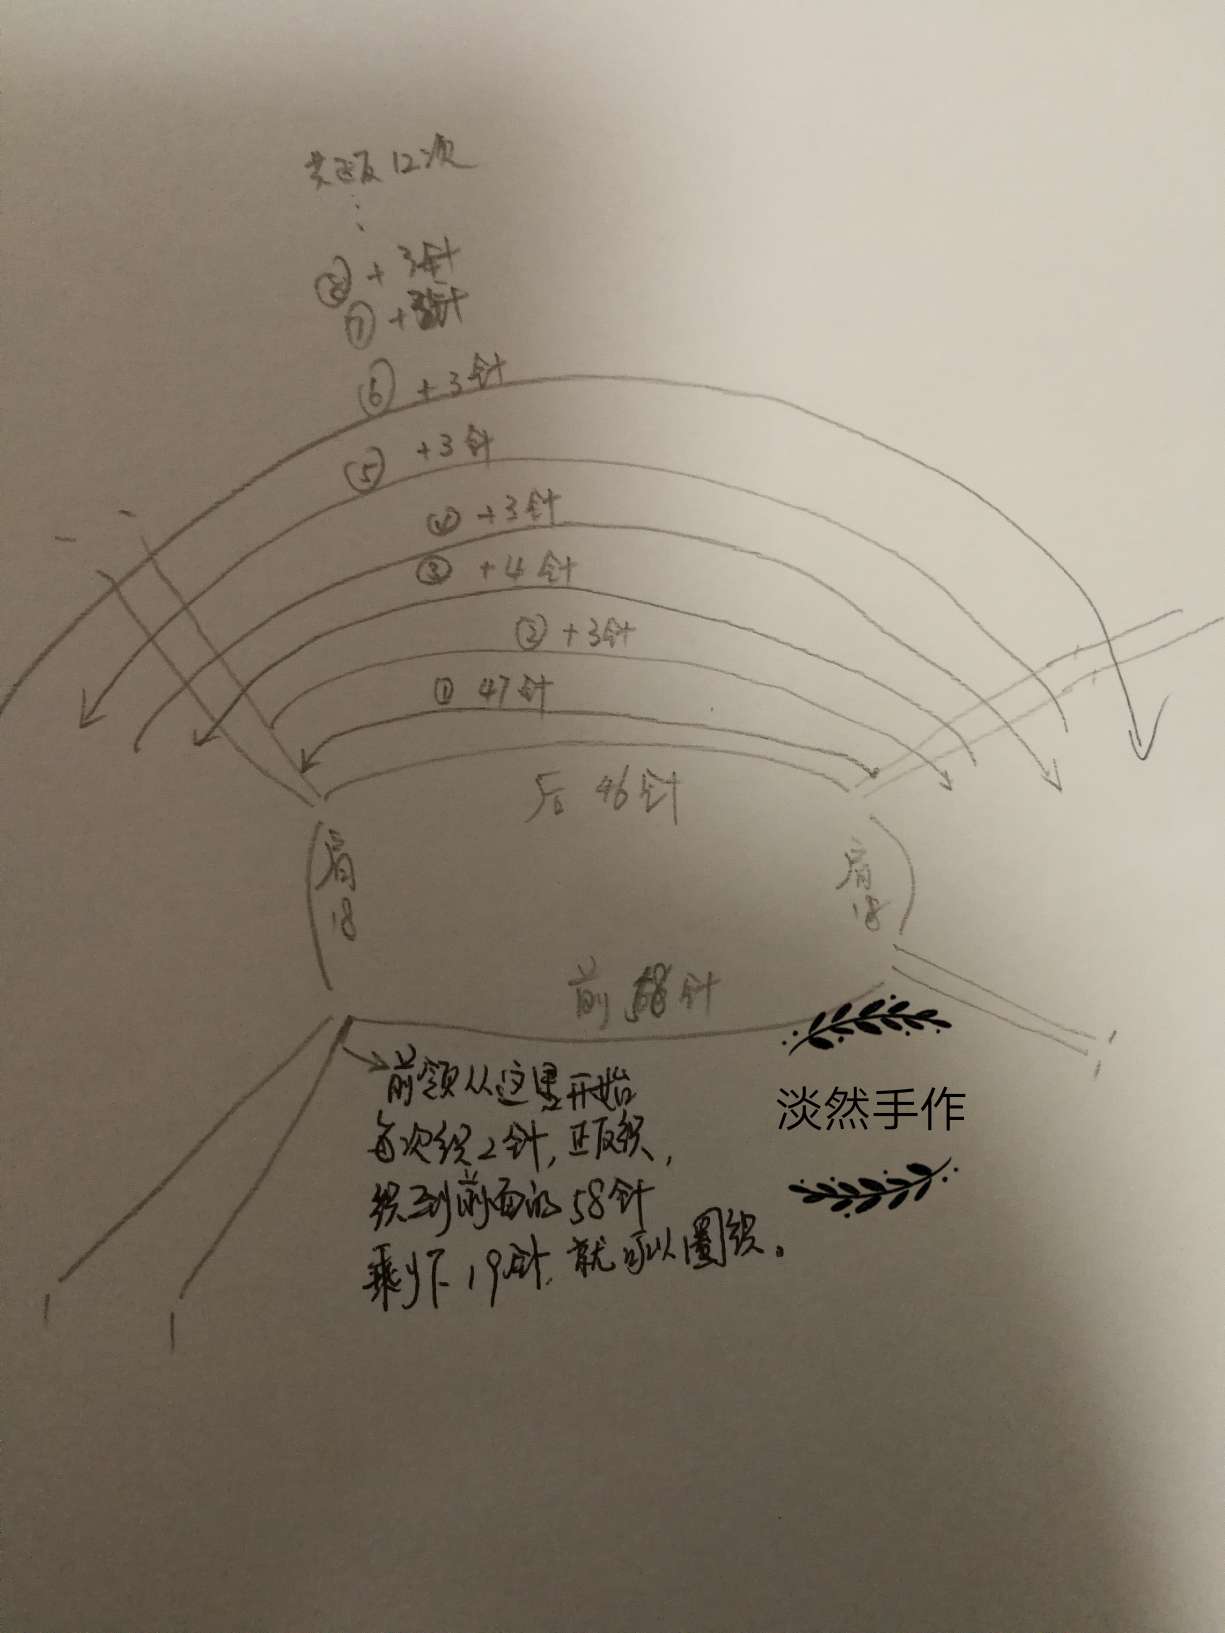 共正反12次
⋮
⑧ + 3针
⑦ + 3针
⑥ + 3针
⑤ + 3针
④ + 3针
③ + 4针
② + 3针
① 47针
后 46针
肩
18
肩
18
前 58针
前领从这里开始
每次织2针,正反织,
织到前面的58针
剩下19针,就可以圈织。
淡然手作